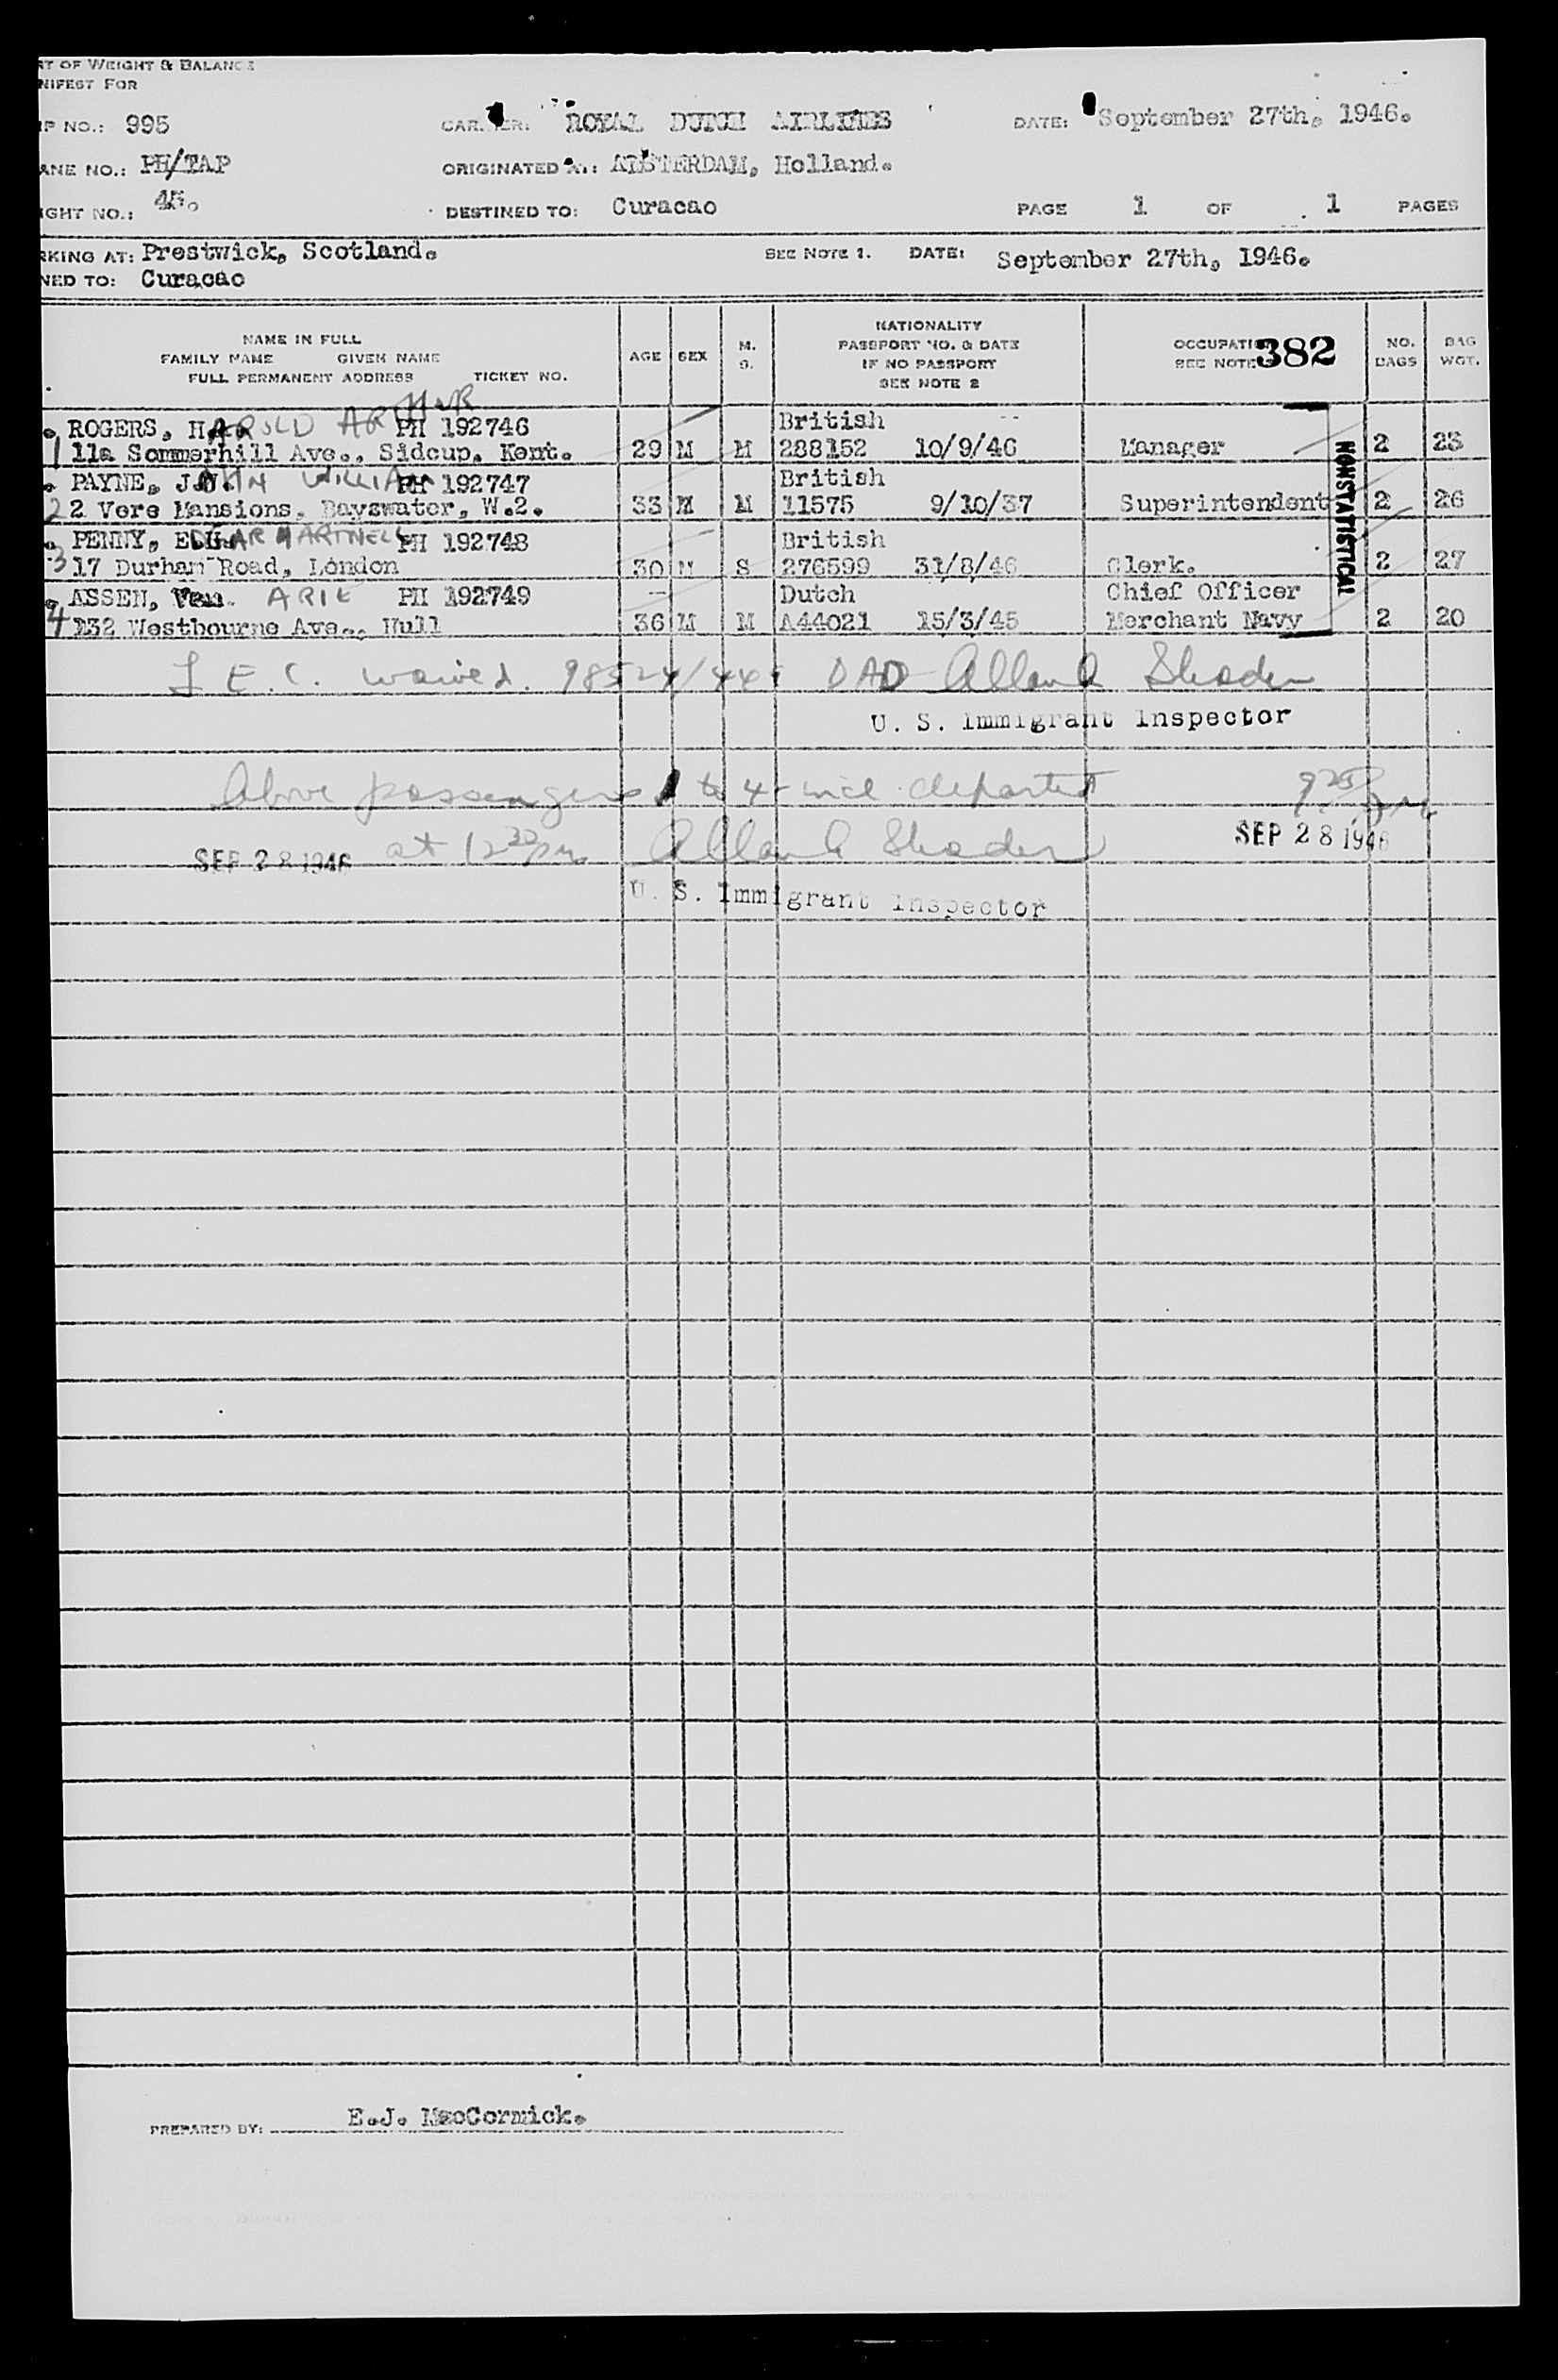 RT OF WEIGHT & BALANCE
NIFEST FOR
IP NO.: 995 CARRIER: ROYAL DUTCH AIRLINES DATE: September 27th, 1946.
ANE NO.: PH/TAP ORIGINATED AT: AMSTERDAM, Holland.
IGHT NO.: 45. DESTINED TO: Curacao PAGE 1 OF 1 PAGES
RKING AT: Prestwick, Scotland. SEE NOTE 1. DATE: September 27th, 1946.
NED TO: Curacao
NAME IN FULL
FAMILY NAME GIVEN NAME
FULL PERMANENT ADDRESS TICKET NO.
AGE SEX M. S.
NATIONALITY
PASSPORT NO. & DATE
IF NO PASSPORT
SEE NOTE 2
OCCUPATI
SEE NOTE 382
NO. BAGS
BAG WGT.
ROGERS, HAROLD ARTHUR PH 192746 British
1 11a Sommerhill Ave., Sidcup. Kent. 29 M M 288152 10/9/46 Manager 2 23
PAYNE, JOHN WILLIAM PH 192747 British
2 2 Vere Mansions, Bayswater, W.2. 33 M M 11575 9/10/37 Superintendent 2 26
PENNY, EDGAR HARTNELL PH 192748 British
3 17 Durham Road, London 30 M S 276599 31/8/46 Clerk. 2 27
ASSEN, Van. ARIE PH 192749 Dutch Chief Officer
4 132 Westbourne Ave., Hull 36 M M A44021 15/3/45 Merchant Navy 2 20
NONSTATISTICAL
E.C. waived. 98524/44 OAD Allan A Shader
U. S. Immigrant Inspector
Above passengers 1 to 4 - incl. departed
at 12 30 pm Allan A Shader
SEP 28 1946
SEP 28 1946
U. S. Immigrant Inspector
PREPARED BY: E.J. MacCormick.